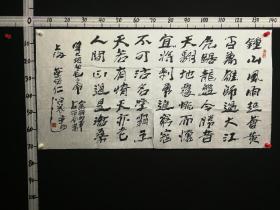 鐘山風雨起蒼黃
百萬雄師過大江
虎踞龍盤今勝昔
天翻地覆慨而慷
宜將剩勇追窮寇
不可沽名學霸王
天若有情天亦老
人間正道是滄桑
上海